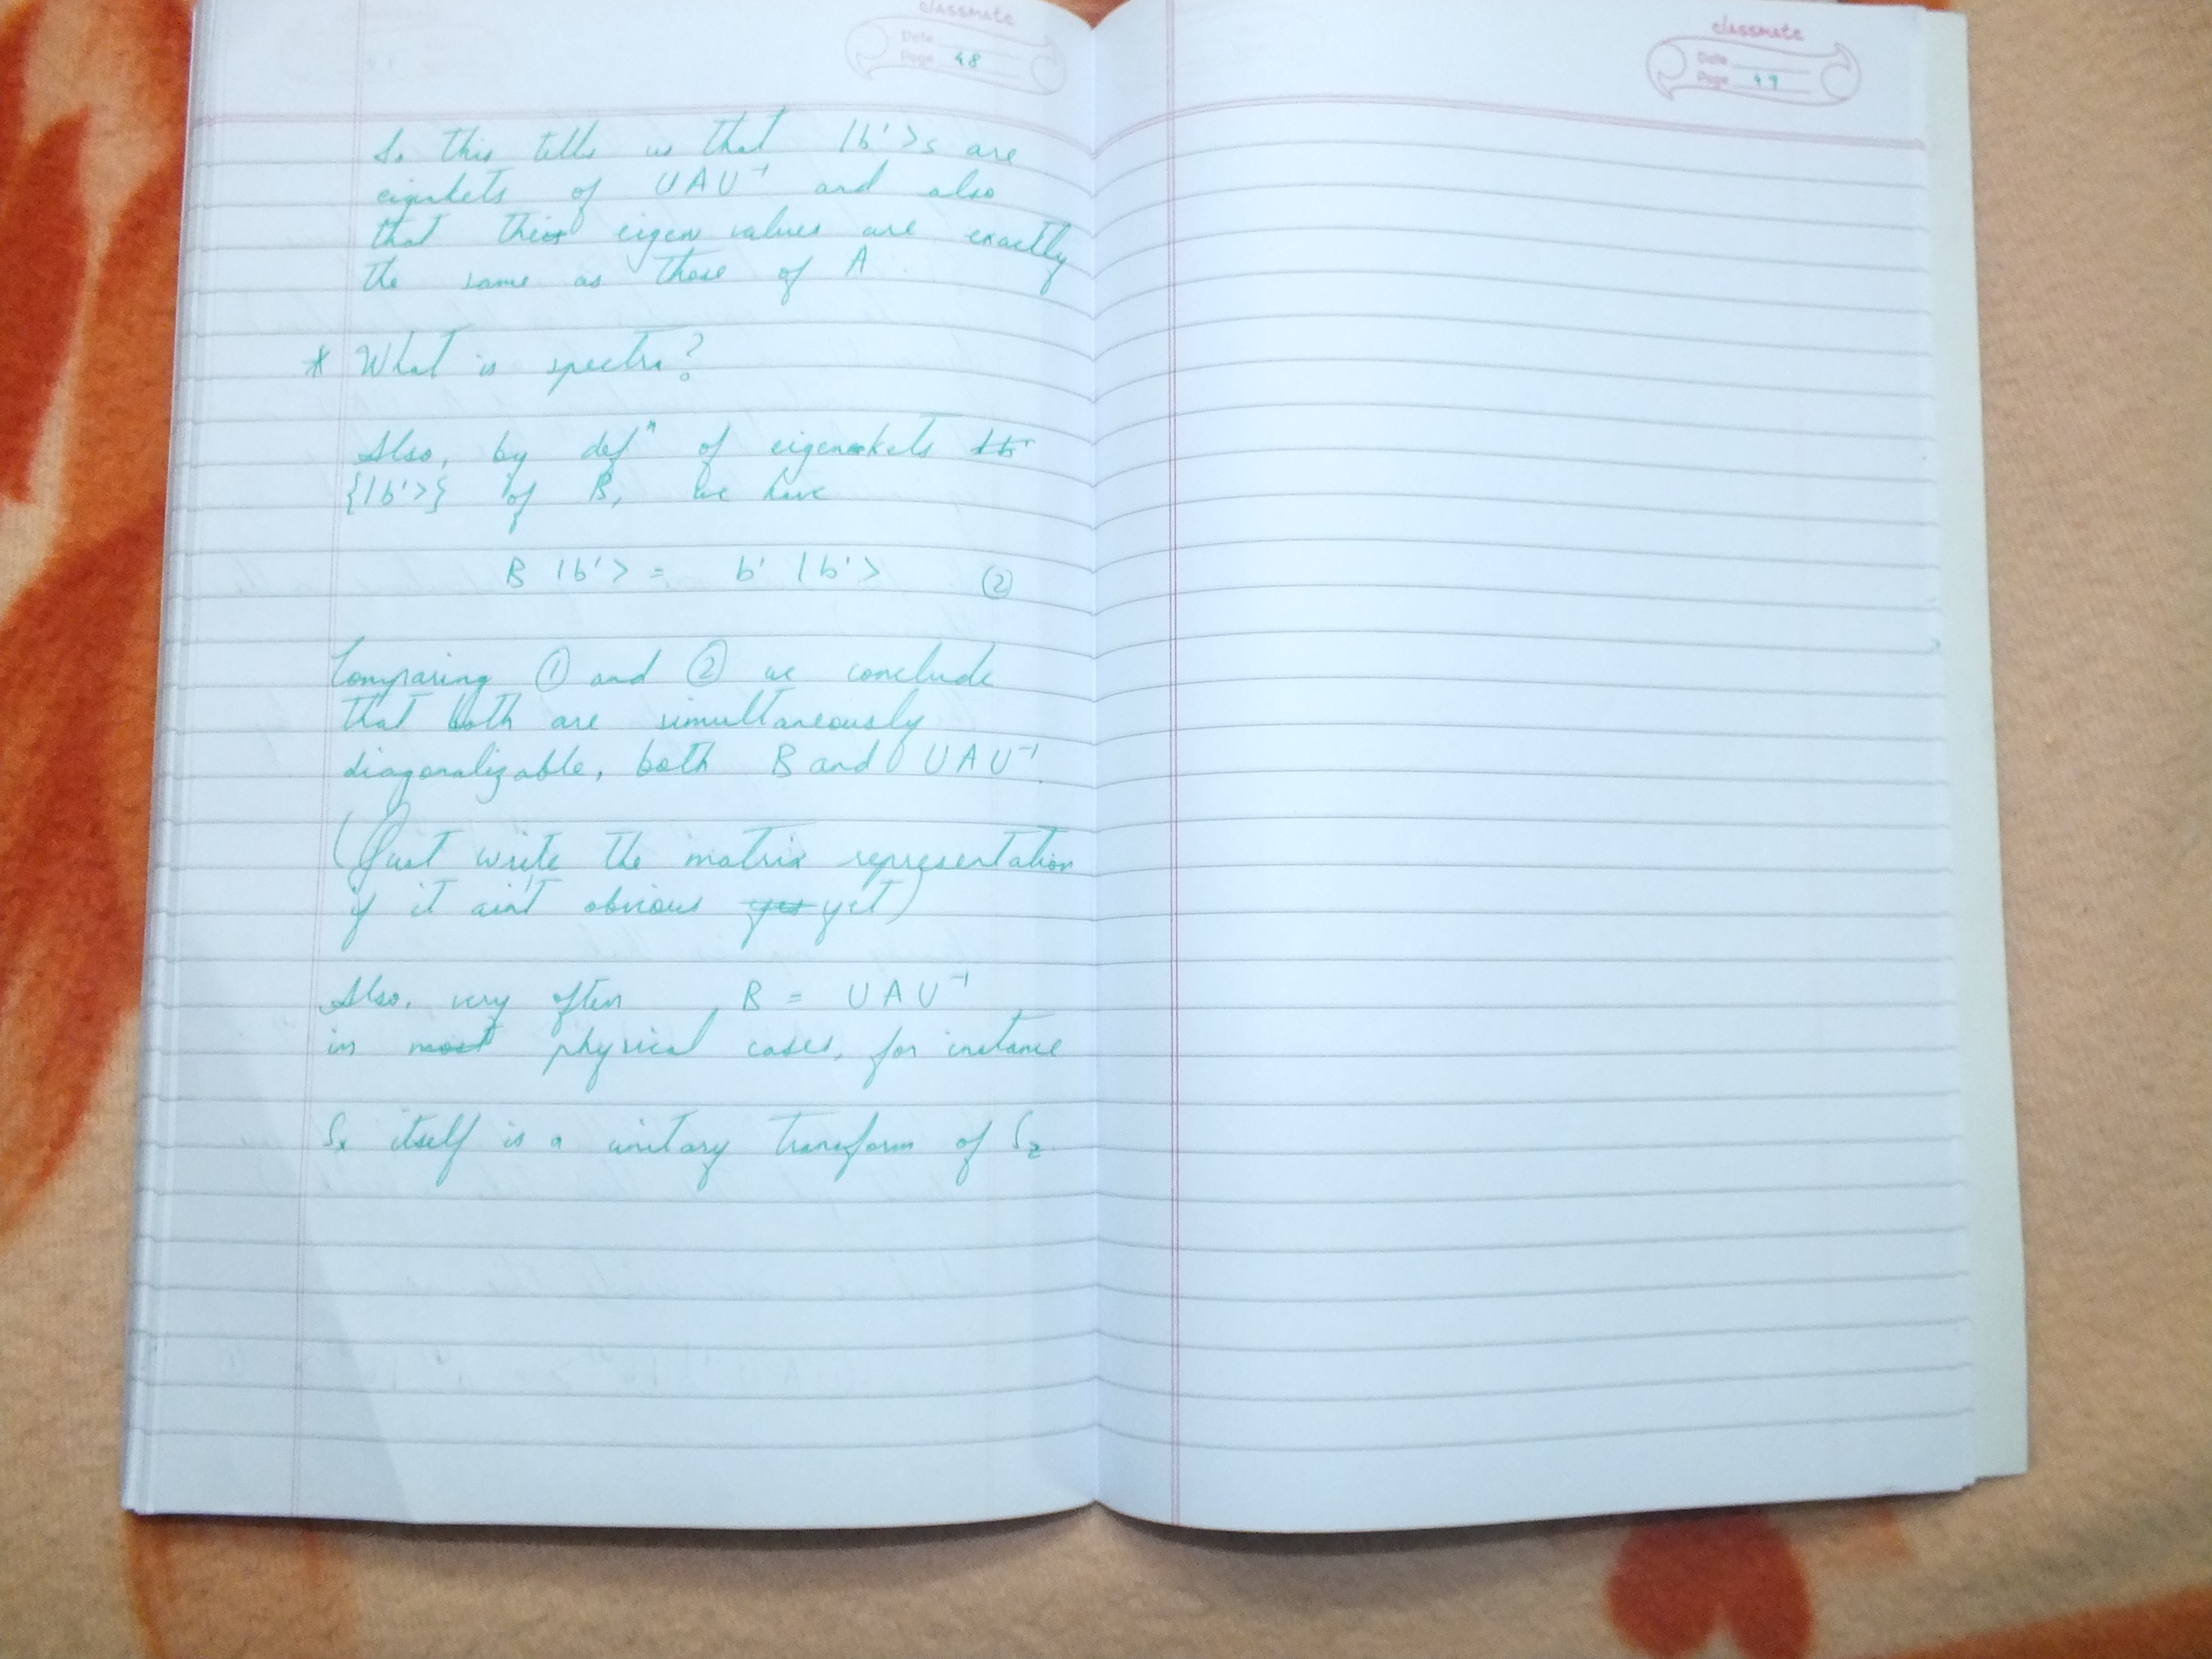 classmate
Date
Page 48
So this tells us that |b'>s are
eigenkets of UAU⁻¹ and also
that their eigen values are exactly
the same as those of A.
* What is spectra?
Also, by defⁿ of eigenkets
{|b'>} of B, we have
B |b'> = b' |b'> ②
Comparing ① and ② we conclude
that both are simultaneously
diagonalizable, both B and UAU⁻¹.
(Just write the matrix representation
if it ain't obvious yet)
Also, very often, B = UAU⁻¹
in most physical cases, for instance
Sx itself is a unitary transform of Sz.
classmate
Date
Page 49